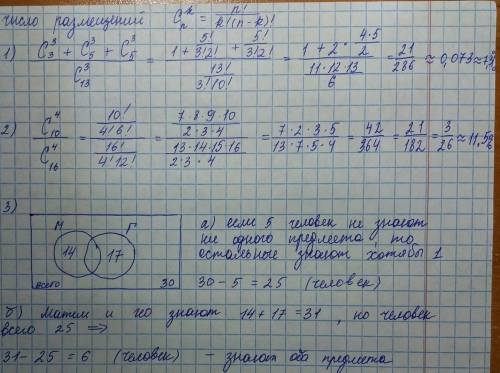 число размещений C_n^k = n! / k!(n-k)!
1) (C_3^3 + C_5^3 + C_5^3) / C_13^3 = (1 + 5!/3!2! + 5!/3!2!) / (13!/3!10!) = (1 + 2 · 4·5/2) / (11·12·13/6) = 21/286 ≈ 0,073 ≈
2) C_10^4 / C_16^4 = (10!/4!6!) / (16!/4!12!) = (7·8·9·10/2·3·4) / (13·14·15·16/2·3·4) = 7·2·3·5/13·7·5·4 = 42/364 = 21/182 = 3/26 ≈ 11,5%
3)
М Г
14 17
всего 30
а) если 5 человек не знают
ни одного предмета, то
остальные знают хотябы 1
30 - 5 = 25 (человек)
б) Матем и гео знают 14 + 17 = 31, но человек
всего 25 ⇒
31 - 25 = 6 (человек) - знают оба предмета